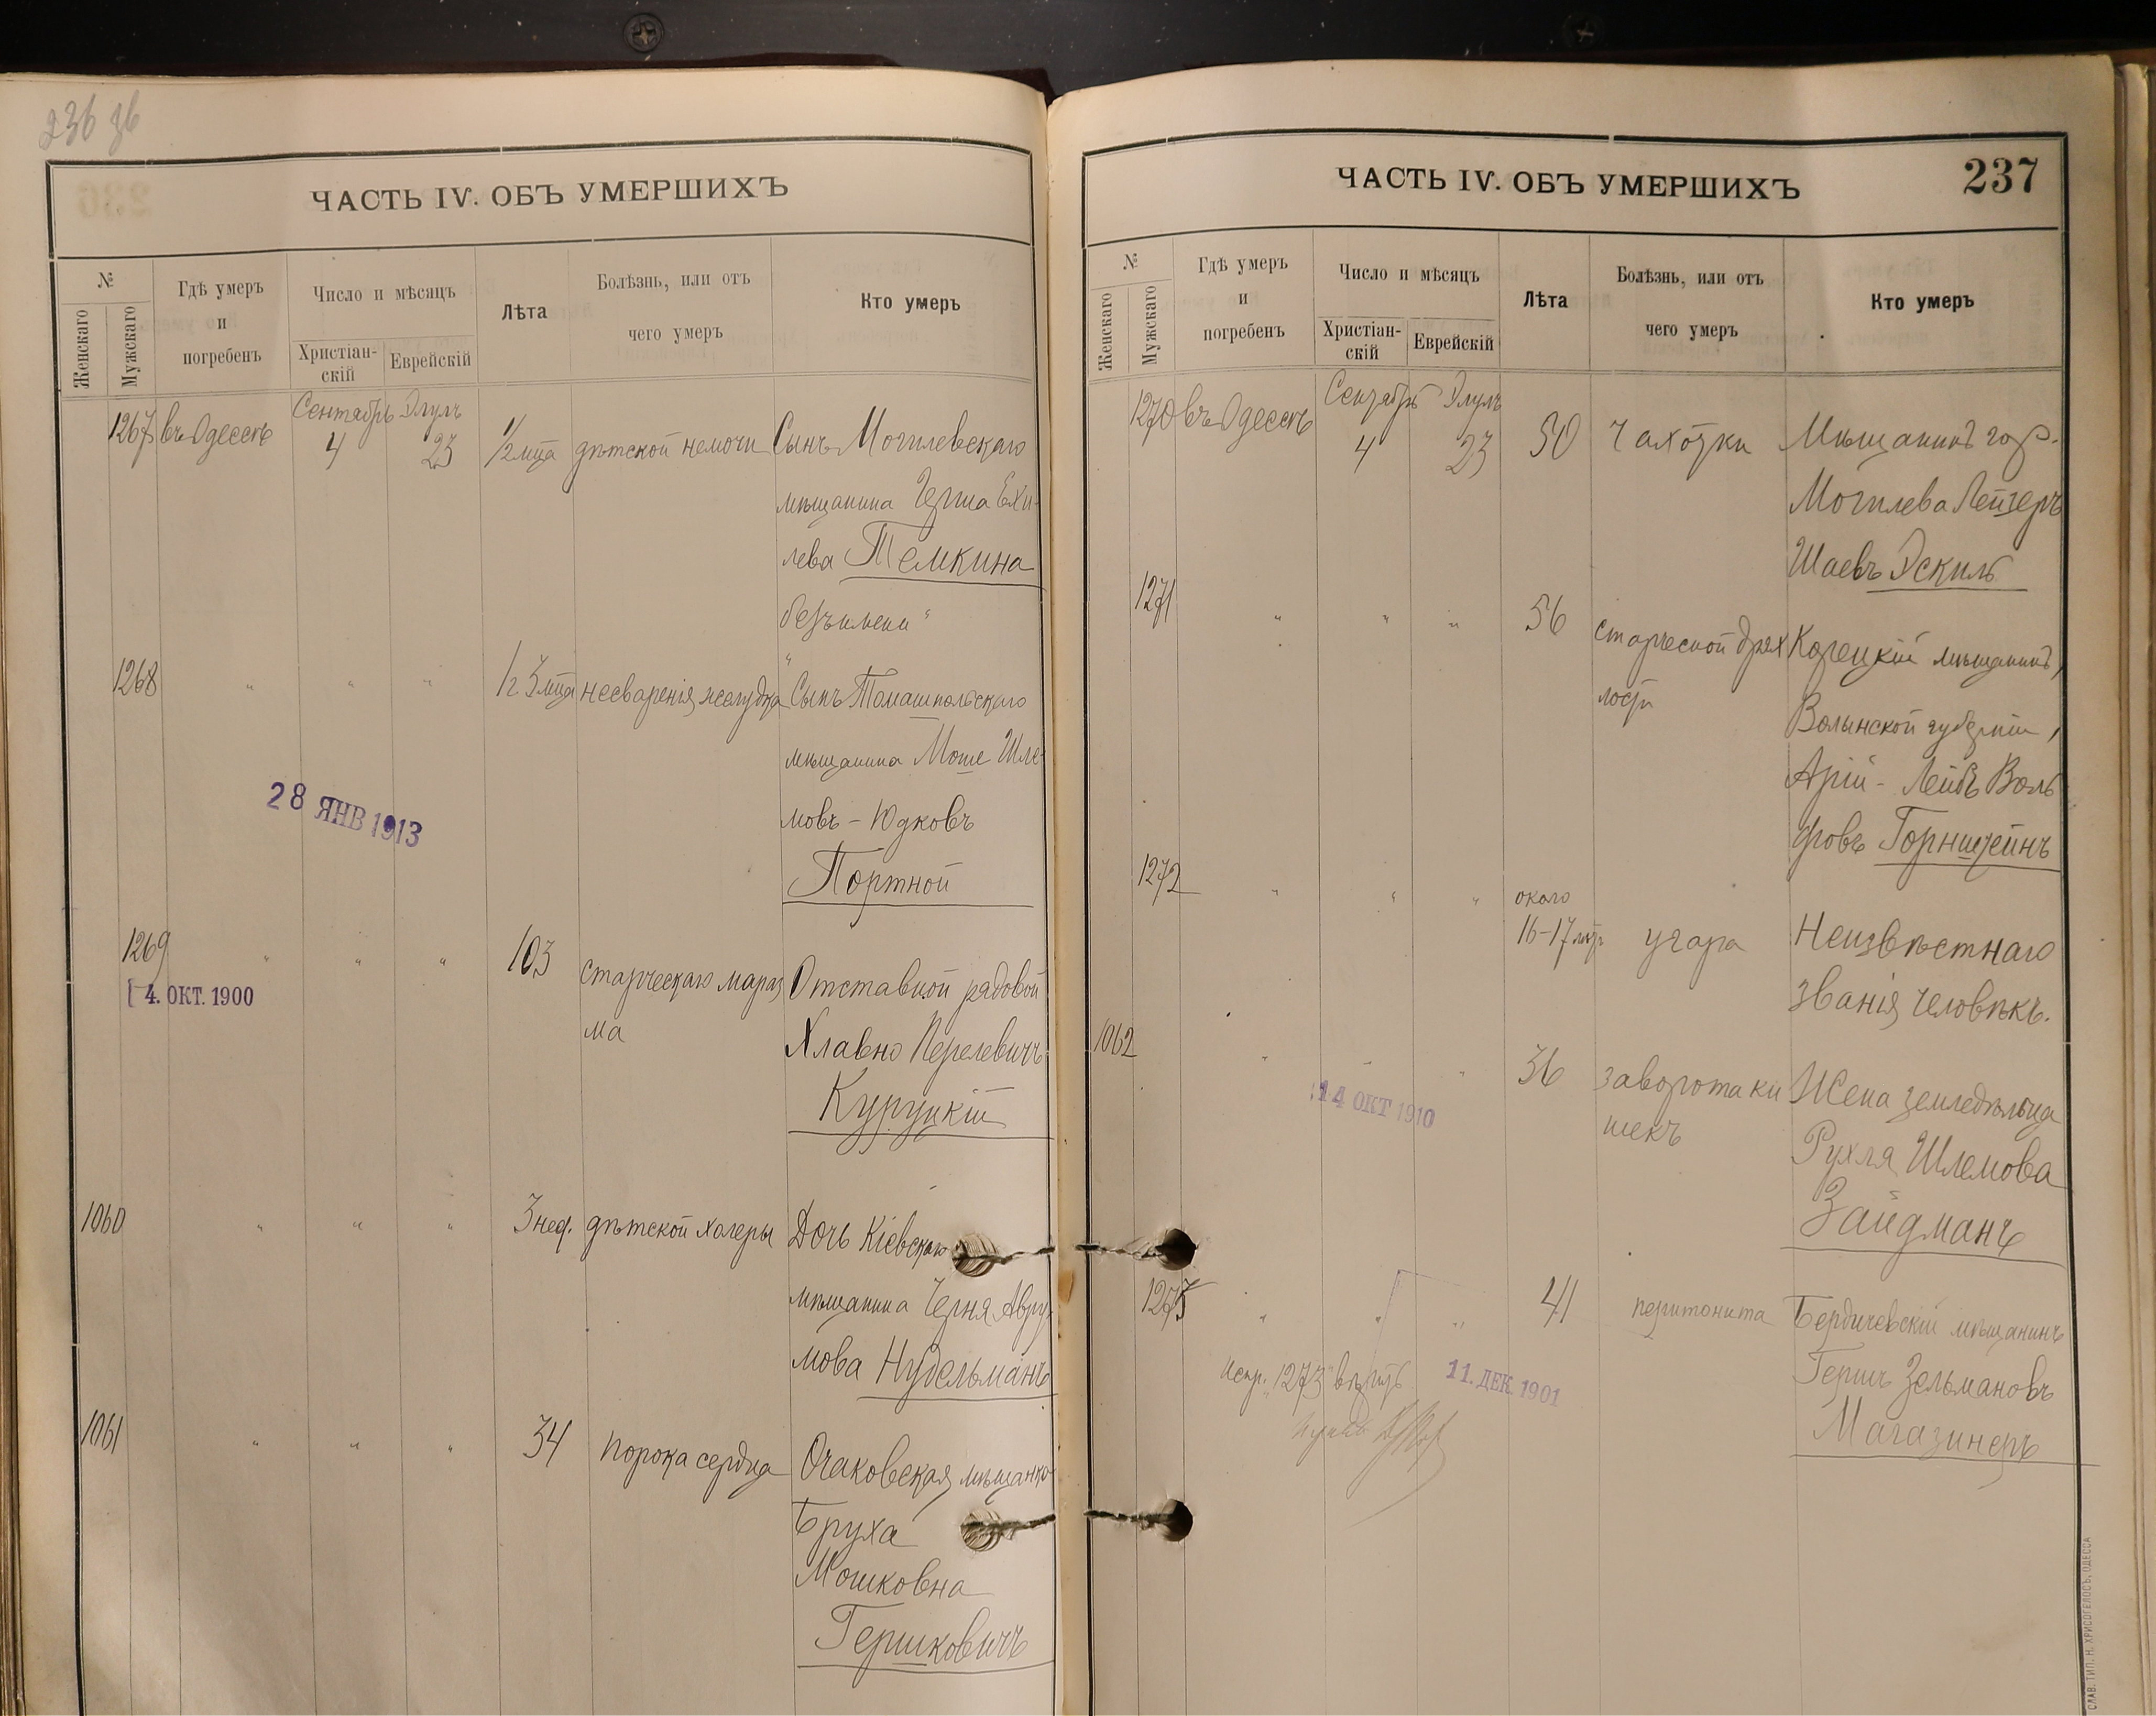 236 зв
ЧАСТЬ IV. ОБЪ УМЕРШИХЪ
№
Женскаго
Мужскаго
Гдѣ умеръ
и
погребенъ
Число и мѣсяцъ
Христіан-
скій
Еврейскій
Лѣта
Болѣзнь, или отъ
чего умеръ
Кто умеръ
Сентябрь Элулъ
1267 въ Одессѣ 4 23 1/2 мца дѣтской немочи Сынъ Могилевскаго
мѣщанина Герша Ехи-
лева Темкина
безъ имени
1268 " " " 1 г. 3 мца несваренія желудка Сынъ Томашпольскаго
мѣщанина Моше Шле-
мовъ-Юдковъ
Портной
28 ЯНВ 1913
1269 " " " 103 старческаго мараз Отставной рядовой
ма
4. ОКТ. 1900
Хлавно Перелевичъ
Куруцкій
1060 " " " 3 нед. дѣтской холеры Дочь Кіевскаго
мѣщанина Черня Авру-
мова Нудельманъ
1061 " " " 34 порока сердца Очаковская мѣщанка
Бруха
Мошковна
Гершковичъ
ЧАСТЬ IV. ОБЪ УМЕРШИХЪ
237
№
Женскаго
Мужскаго
Гдѣ умеръ
и
погребенъ
Число и мѣсяцъ
Христіан-
скій
Еврейскій
Лѣта
Болѣзнь, или отъ
чего умеръ
Кто умеръ
Сентябрь Элулъ
1270 въ Одессѣ 4 23 50 чахотки Мѣщанинъ гор.
Могилева Лейзеръ
Шаевъ Эскиль
1271 " " " 56 старческой дрях Корецкій мѣщанинъ,
лости
Волынской губерніи,
Арій-Лейбъ Воль
фовъ Горнштейнъ
1272 " " " около
16-17 лѣтъ угара Неизвѣстнаго
званія человѣкъ.
1062 " " " 36 заворота ки Жена земледѣльца
шекъ
Рухля Шлемова
Зайдманъ
14 ОКТ 1910
1273 " " " 41 перитонита Бердичевскій мѣщанинъ
Гершъ Зельмановъ
Магазинеръ
испр. 1273 вѣрить
11. ДЕК. 1901
СЛАВ. ТИП. Н. ХРИСОГЕЛОСЪ, ОДЕССА